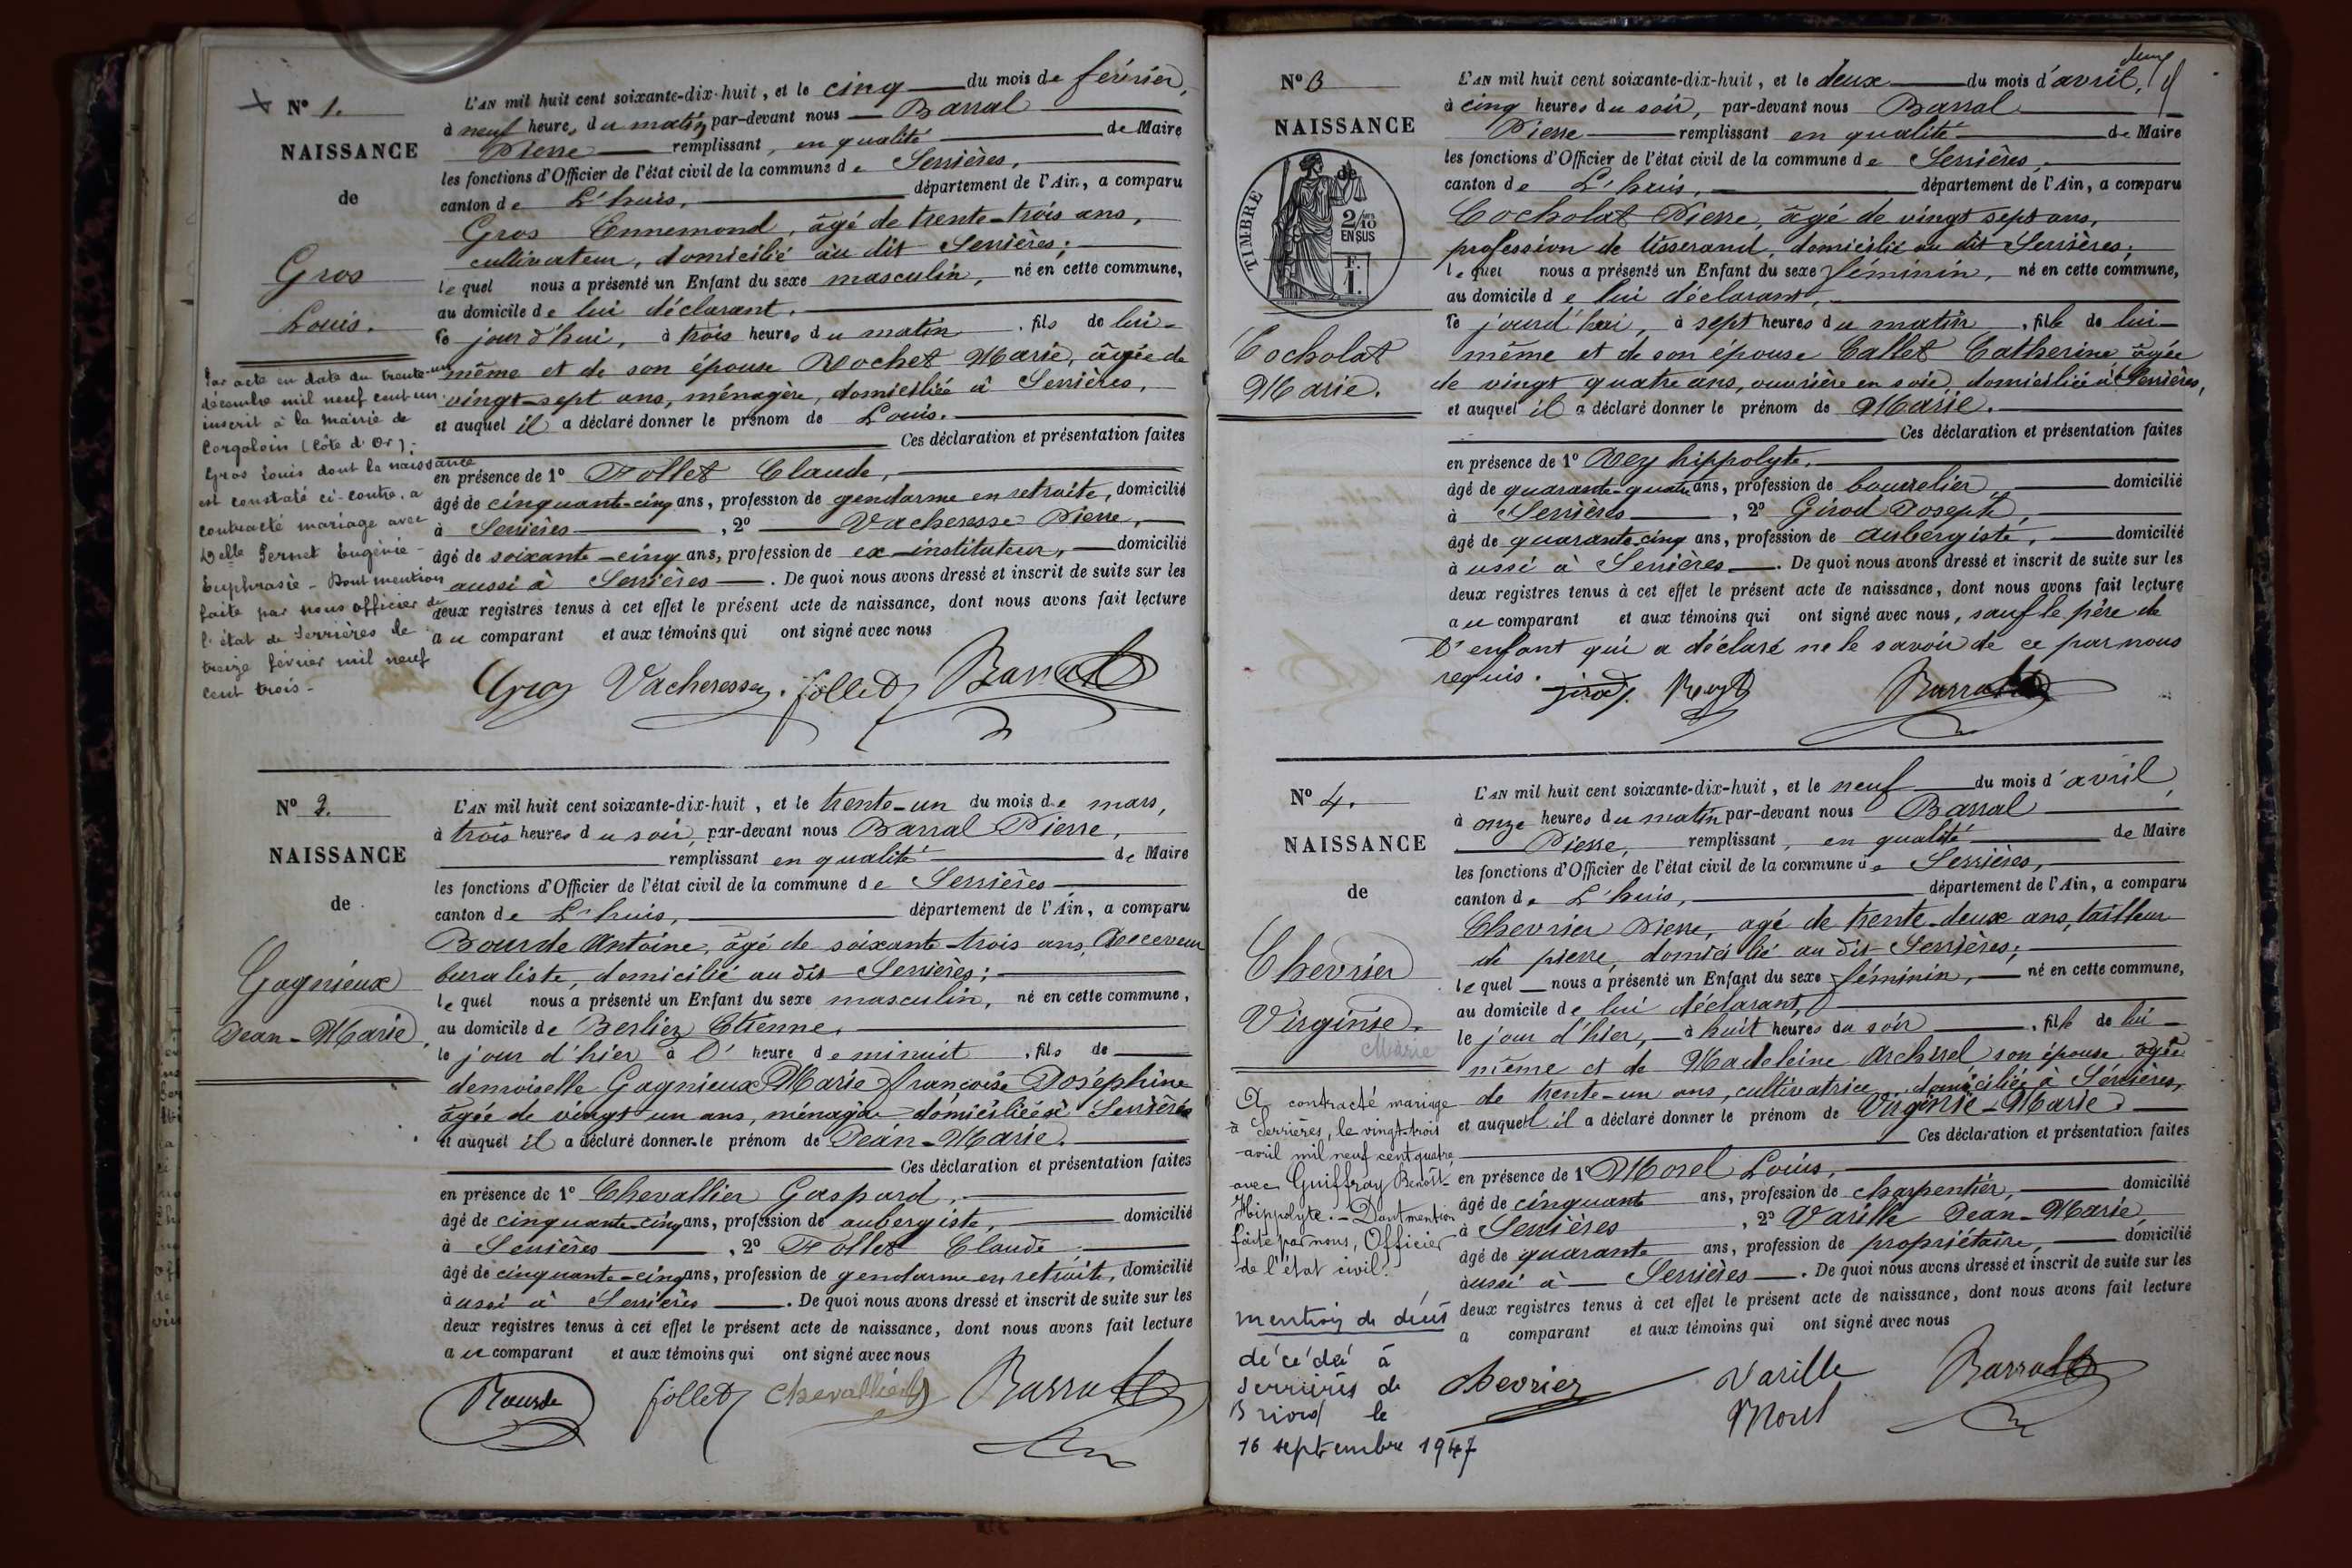 Nº 1.
NAISSANCE
de
Gros
Louis.
Par acte en date du trente-un
décembre mil neuf cent un
inscrit à la Mairie de
Corgoloin (Côte d'Or) :
Gros Louis dont la naissance
est constaté ci-contre, a
contracté mariage avec
Delle Pernet Eugénie
Euphrasie - Dont mention
faite par nous officier de
l'état de Serrières le
treize février mil neuf
cent trois -
L'AN mil huit cent soixante-dix-huit, et le cinq du mois de février,
à neuf heures du matin, par-devant nous Barral
Pierre remplissant, en qualité de Maire
les fonctions d'Officier de l'état civil de la commune de Serrières,
canton de L'huis, département de l'Ain, a comparu
Gros Ennemond, âgé de trente-trois ans,
cultivateur, domicilié au dit Serrières ;
lequel nous a présenté un Enfant du sexe masculin, né en cette commune,
au domicile de lui déclarant.
ce jour d'hui, à trois heures du matin, fils de lui-
même et de son épouse Rochet Marie, âgée de
vingt-sept ans, ménagère, domiciliée à Serrières,
et auquel il a déclaré donner le prénom de Louis.
Ces déclaration et présentation faites
en présence de 1º Follet Claude,
âgé de cinquante-cinq ans, profession de gendarme en retraite, domicilié
à Serrières, 2º Vacheresse Pierre,
âgé de soixante-cinq ans, profession de ex-instituteur, domicilié
aussi à Serrières. De quoi nous avons dressé et inscrit de suite sur les
deux registres tenus à cet effet le présent acte de naissance, dont nous avons fait lecture
au comparant et aux témoins qui ont signé avec nous
Gros Vacheresse follet Barral
Nº 2.
NAISSANCE
de
Gagnieux
Jean-Marie.
L'AN mil huit cent soixante-dix-huit, et le trente-un du mois de mars,
à trois heures du soir, par-devant nous Barral Pierre,
remplissant en qualité de Maire
les fonctions d'Officier de l'état civil de la commune de Serrières
canton de L'huis, département de l'Ain, a comparu
Bourde Antoine, âgé de soixante-trois ans, Receveur
buraliste, domicilié au dit Serrières ;
lequel nous a présenté un Enfant du sexe masculin, né en cette commune,
au domicile de Berliez Etienne,
le jour d'hier à l'heure de minuit, fils de
demoiselle Gagnieux Marie Françoise Joséphine
âgée de vingt-un ans, ménagère domiciliée à Serrières
et auquel il a déclaré donner le prénom de Jean-Marie.
Ces déclaration et présentation faites
en présence de 1º Chevallier Gaspard,
âgé de cinquante-cinq ans, profession de aubergiste, domicilié
à Serrières, 2º Follet Claude
âgé de cinquante-cinq ans, profession de gendarme en retraite, domicilié
aussi à Serrières. De quoi nous avons dressé et inscrit de suite sur les
deux registres tenus à cet effet le présent acte de naissance, dont nous avons fait lecture
au comparant et aux témoins qui ont signé avec nous
Bourde follet chevallier Barral
Nº 3
NAISSANCE
de
TIMBRE
2/10
EN SUS
F.
1.
Cocholat
Marie.
L'AN mil huit cent soixante-dix-huit, et le deux du mois d'avril,
à cinq heures du soir, par-devant nous Barral
Pierre remplissant en qualité de Maire
les fonctions d'Officier de l'état civil de la commune de Serrières,
canton de L'huis, département de l'Ain, a comparu
Cocholat Pierre, âgé de vingt sept ans,
profession de tisserand, domicilié au dit Serrières ;
lequel nous a présenté un Enfant du sexe féminin, né en cette commune,
au domicile de lui déclarant,
ce jourd'hui, à sept heures du matin, fille de lui-
même et de son épouse Callet Catherine âgée
de vingt quatre ans, ouvrière en soie, domiciliée à Serrières,
et auquel il a déclaré donner le prénom de Marie.
Ces déclaration et présentation faites
en présence de 1º Rey hippolyte,
âgé de quarante-quatre ans, profession de bourrelier, domicilié
à Serrières, 2º Girod Joseph,
âgé de quarante-cinq ans, profession de aubergiste, domicilié
aussi à Serrières. De quoi nous avons dressé et inscrit de suite sur les
deux registres tenus à cet effet le présent acte de naissance, dont nous avons fait lecture
au comparant et aux témoins qui ont signé avec nous, sauf le père de
l'enfant qui a déclaré ne le savoir de ce par nous
requis.
girod Rey Barral
Nº 4.
NAISSANCE
de
Chevrier
Virginie.
Marie
A contracté mariage
à Serrières, le vingt-trois
avril mil neuf cent quatre
avec Guiffray Benoît-
Hippolyte. - Dont mention
faite par nous, Officier
de l'état civil.
mention de décès
décédée à
Serrières de
Briord le
16 septembre 1947
L'AN mil huit cent soixante-dix-huit, et le neuf du mois d'avril,
à onze heures du matin par-devant nous Barral
Pierre, remplissant, en qualité de Maire
les fonctions d'Officier de l'état civil de la commune de Serrières,
canton de L'huis, département de l'Ain, a comparu
Chevrier Pierre, agé de trente-deux ans, tailleur
de pierre, domicilié au dit Serrières ;
lequel nous a présenté un Enfant du sexe féminin, né en cette commune,
au domicile de lui déclarant,
le jour d'hier, à huit heures du soir, fille de lui-
même et de Madeleine Archirel son épouse âgée
de trente-un ans, cultivatrice, domiciliée à Serrières,
et auquel il a déclaré donner le prénom de Virginie-Marie.
Ces déclaration et présentation faites
en présence de 1º Morel Louis,
âgé de cinquante ans, profession de charpentier, domicilié
à Serrières, 2º Varille Jean-Marie,
âgé de quarante ans, profession de propriétaire, domicilié
aussi à Serrières. De quoi nous avons dressé et inscrit de suite sur les
deux registres tenus à cet effet le présent acte de naissance, dont nous avons fait lecture
a comparant et aux témoins qui ont signé avec nous
chevrier Varille Barral
Morel